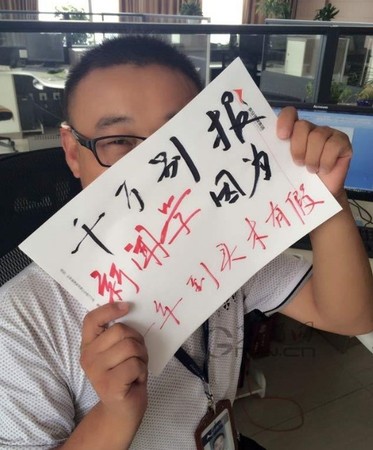 千万别报
新闻学 因为
一年到头木有假